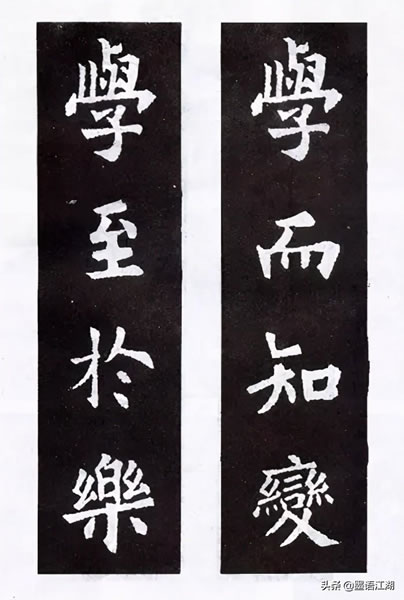 學而知變
學至於樂
头条 @墨语江湖